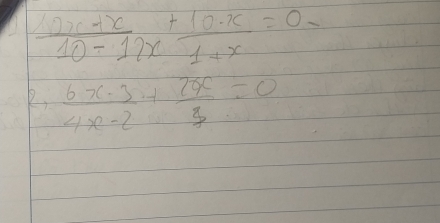 1. (12x+x)/(10-12x) + (10·x)/(1+x) = 0
2, (6x·3)/(4x-2) + = 0